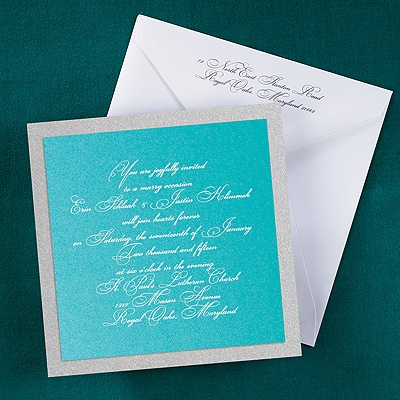 12 North East Stanton Road
Royal Oaks, Maryland 21122
You are joyfully invited
to a marry occasion
Erin Tibbah & Justin Klimmek
will join hearts forever
on Saturday, the seventeenth of January
Two thousand and fifteen
at six o'clock in the evening
St. Paul's Lutheran Church
1212 Mason Avenue
Royal Oaks, Maryland